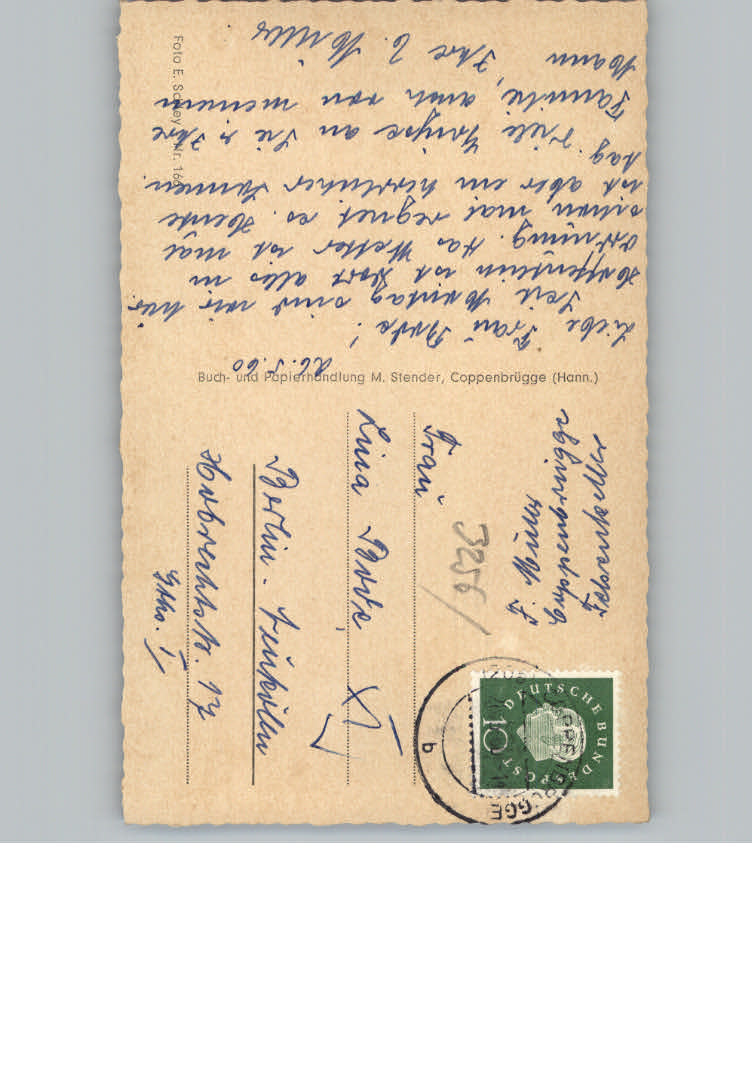 26.5.60
Liebe Frau Bode!
Seit Montag sind wir hier
Hoffentlich ist dort alles in
Ordnung. Das Wetter ist mal
schön mal regnet es. Heute
ist aber ein herrlicher Sonnen-
tag. Viele Grüsse an Sie u. Ihre
Familie, auch von meinem
Mann Ihre E. Müller
Foto E. Nr. 166
Buch- und Papierhandlung M. Stender, Coppenbrügge (Hann.)
F. Müller
Coppenbrügge
Felsenkeller
3256/
Frau
Lina Bode
Berlin-Neukölln
Hobrechtstr. 17
I
DEUTSCHE BUNDESPOST
10
COPPENBRÜGGE
b